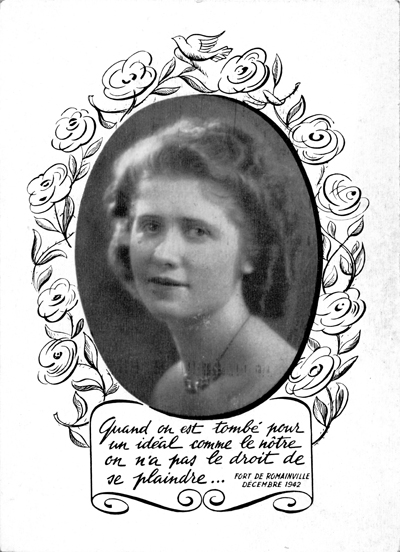 Quand on est tombé pour
un idéal comme le nôtre
on n'a pas le droit de
se plaindre... FORT DE ROMAINVILLE
DECEMBRE 1942